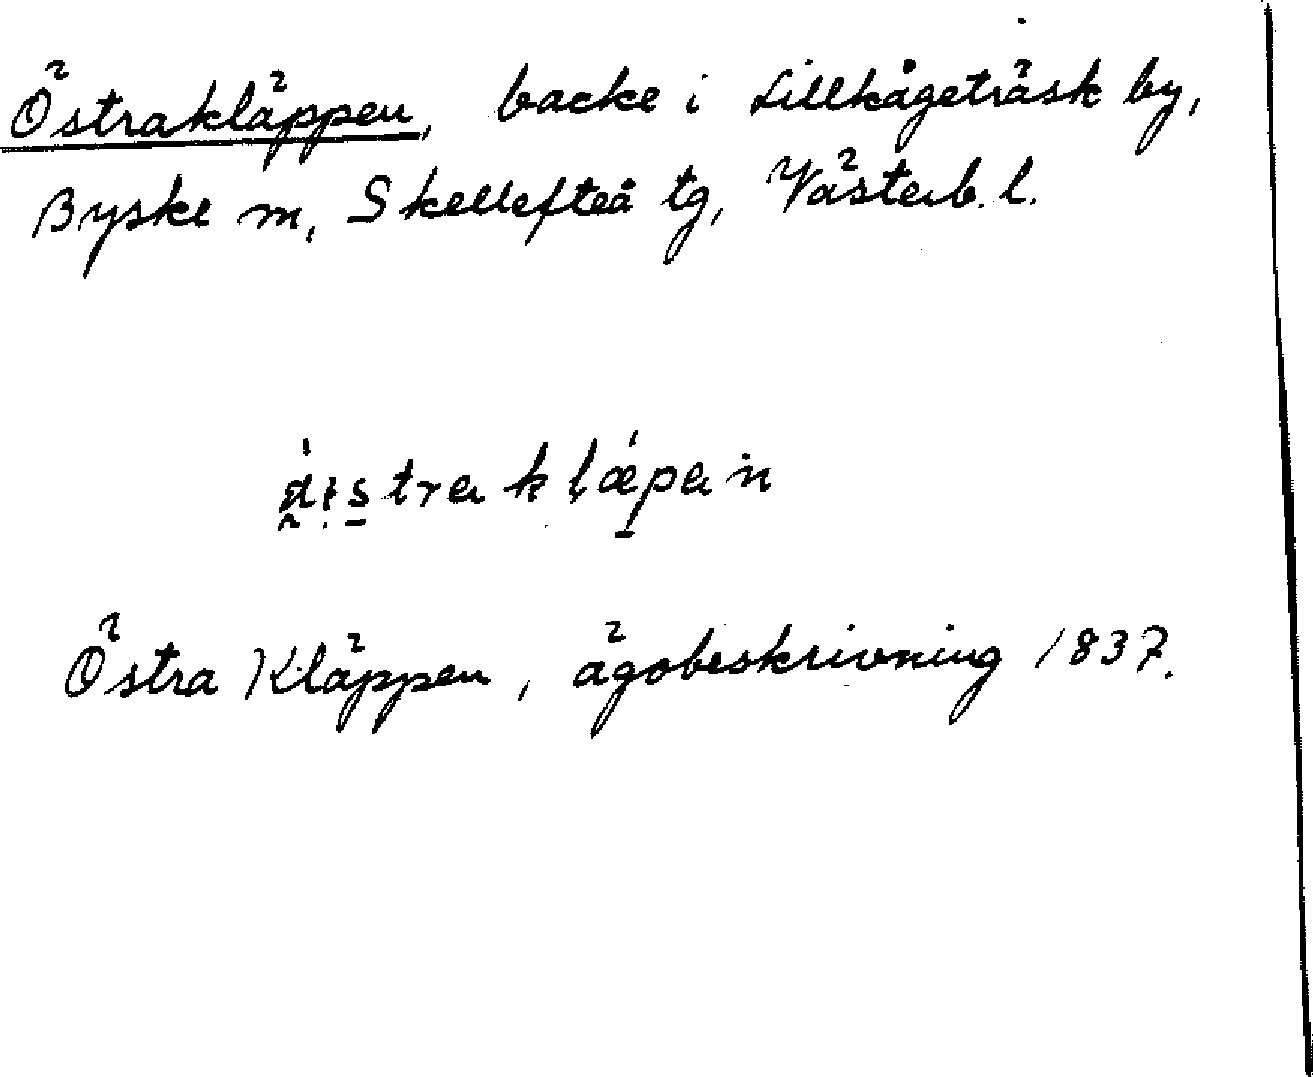 Östrakläppen, backe i Lillkågeträsk by,
Byske m, Skellefteå tg, Västerb. l.
Östra Kläppen, ägobeskrivning 1837.